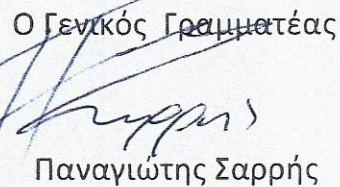 Ο Γενικός Γραμματέας
Παναγιώτης Σαρρής